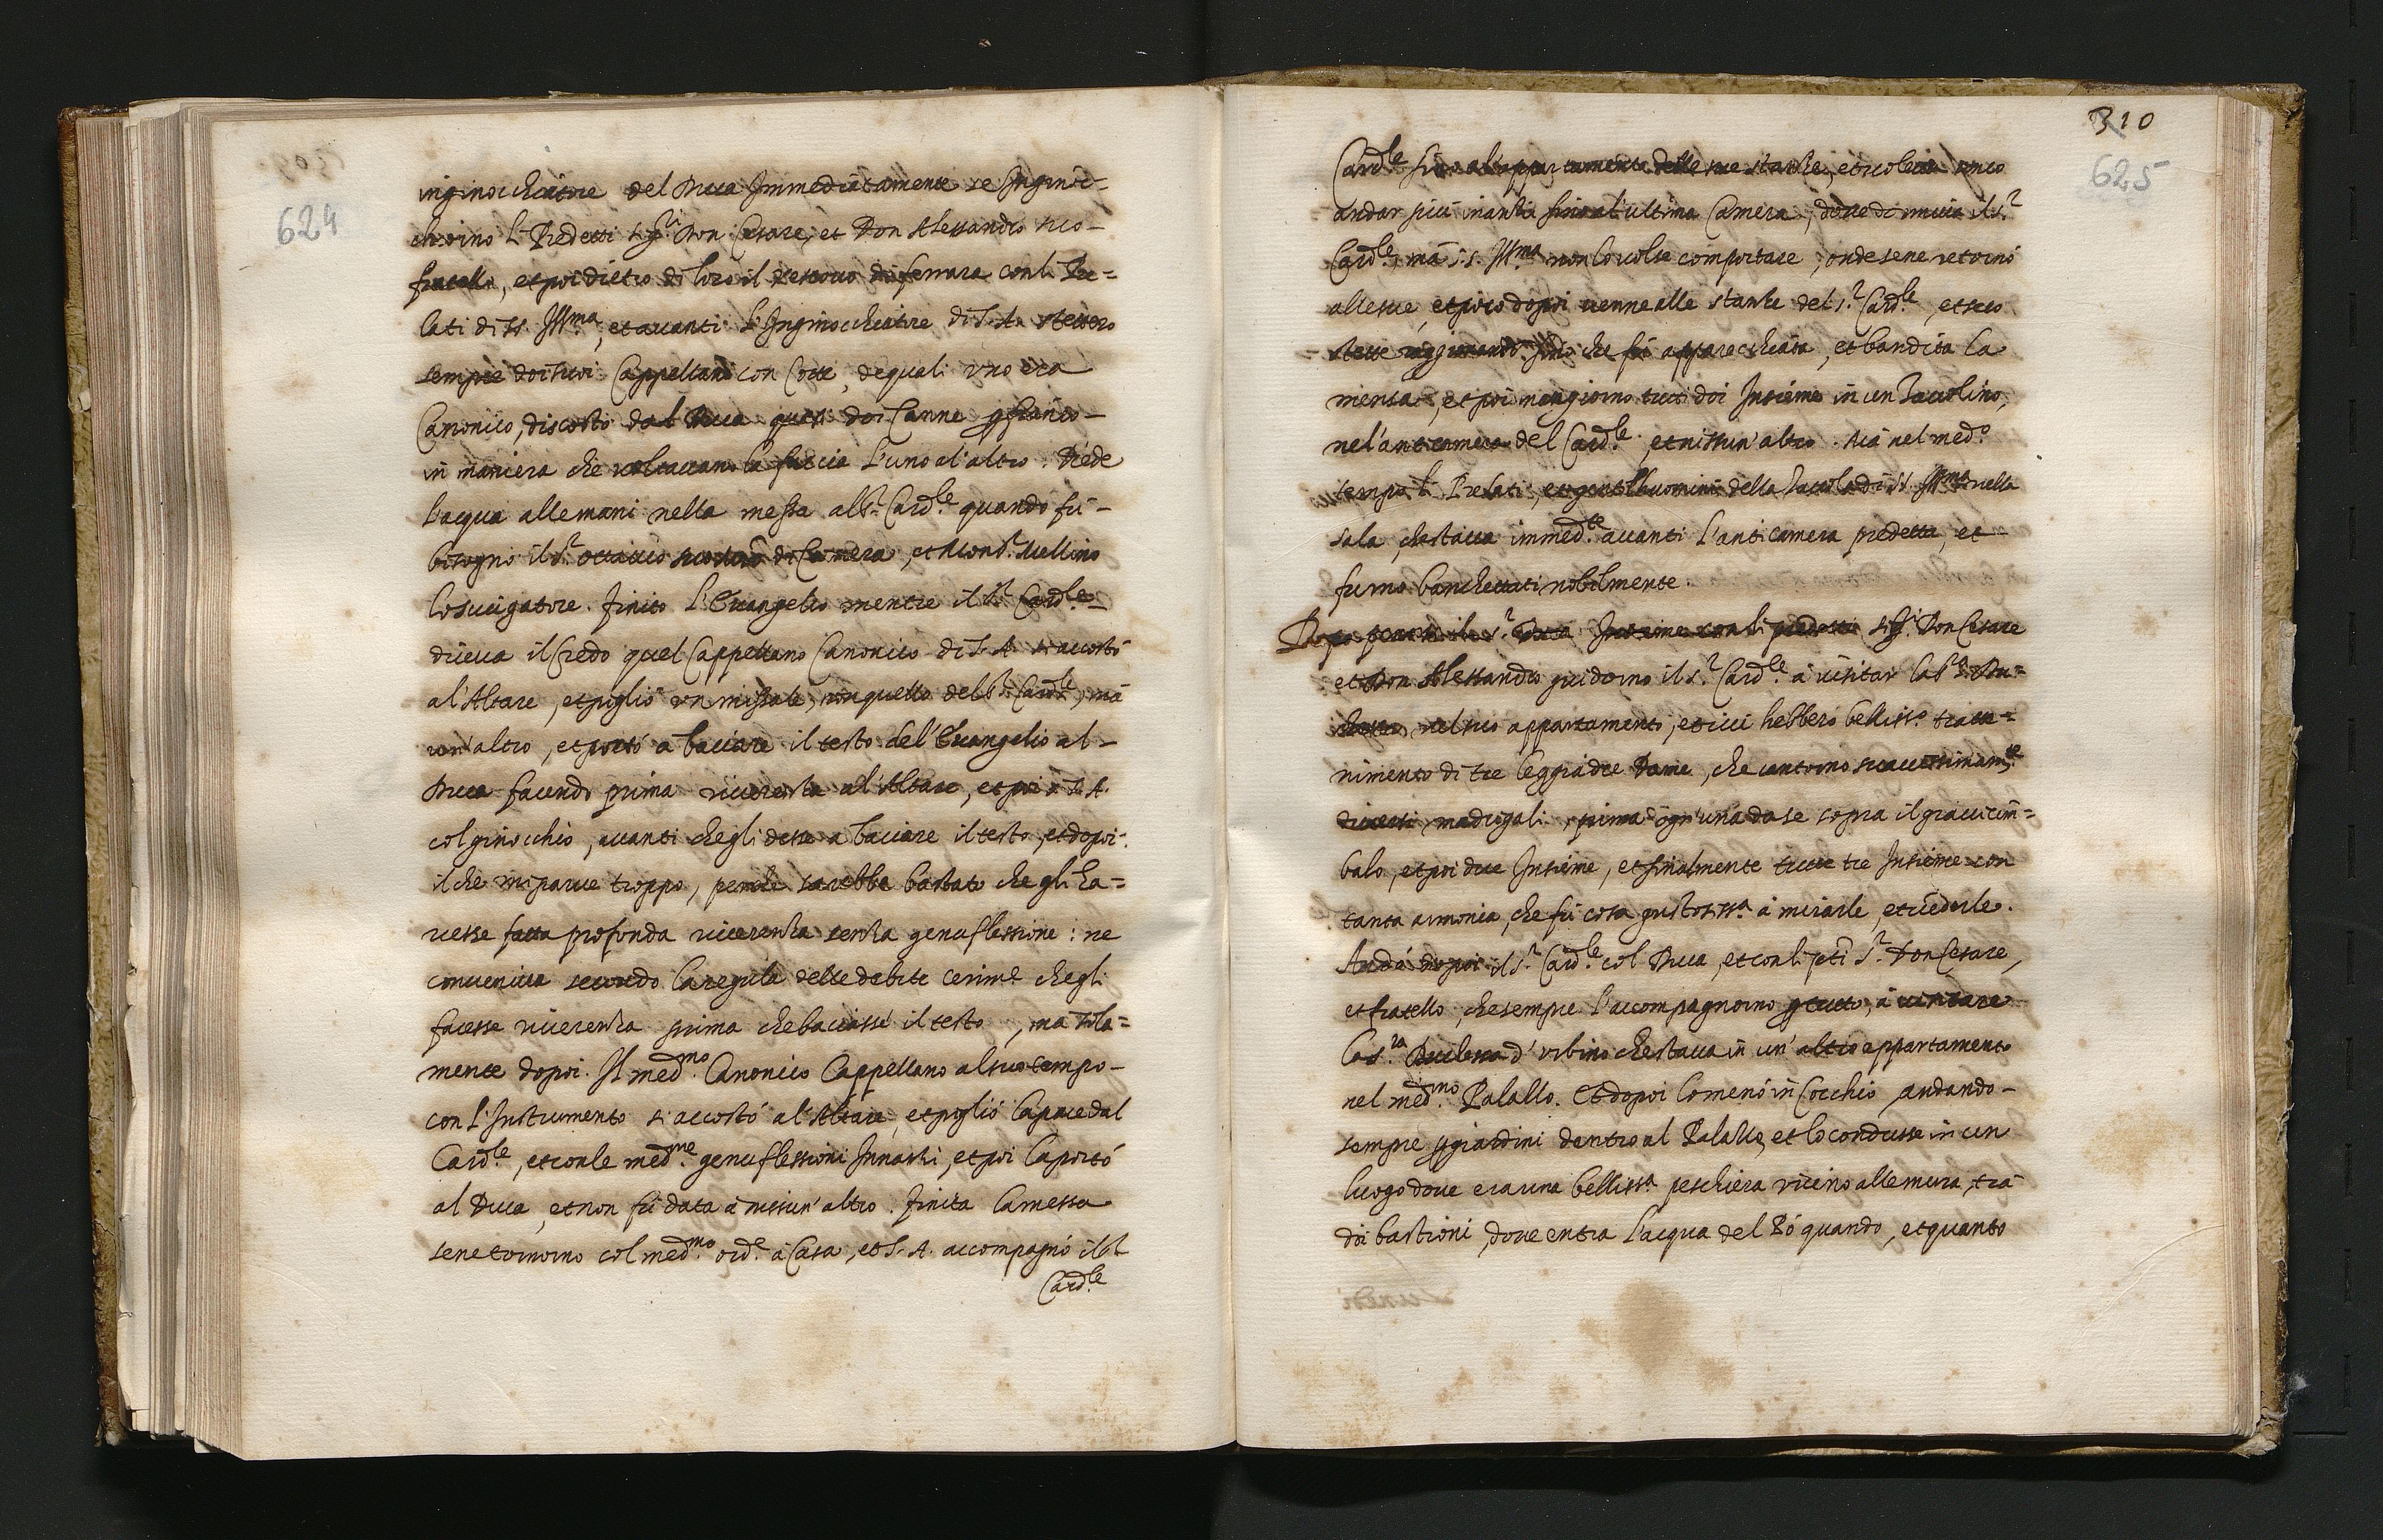 624
inginocchiatore del Duca Immediatamente se Inginoc=
chiorno li Predetti sigri. Don Cesare, et Don Alessandro suo-
fratello, et poi dietro di loro il vescovo di ferrara con li Pre=
lati di SS. Illma., et avanti l'Inginocchiatore di S. A. stettero
sempre doi suoi Cappellani con Cotte, de quali uno era
Canonico, discosto dal Duca quasi doi Canne per fianco-
in maniera che voltavano la faccia l'uno al'altro. Diede
l'acqua alle mani nella messa alSr. Cardle. quando fú-
bisogno il Sr. Ottavio di Camera, et Monsr. Mellino
losciugatore. finito l'Evangelio mentre il Sr. Cardle.-
diceva il Credo quel Cappellano Canonico di S. A. si accostó
al'Altare, et pigliò un missale, non quello delSr. Cardle, má
un'altro, et portó a baciare il testo del'Evangelio al-
Duca facendo prima riverenza al'Altare, et poi a S. A.
col ginocchio, avanti che gli desse a baciare il testo, et dopoi.
il che mi parve troppo, perche sarebbe bastato che gli ha=
vesse fatta profonda riverenza senza genuflessione: ne
conveniva secondo la regula delle debite cerime. che gli
facesse riverenza prima che baciasse il testo, ma sola=
mente dopoi. Il medmo. Canonico Cappellano al suo tempo-
con l'Instrumento si accostó al'Altare, et pigliò la pace dal
Cardle., et con le medme. genuflessioni Innanzi, et poi la portó
al Duca, et non fú data á nissun'altro. finita la messa
sene tornorno col medmo. orde. á Casa, et S. A. accompagnò il Sr
Cardle.
310
625
Cardle. sino al'appartamento delle sue stanze, et voleva anco
andar piú inanzi sino al'ultima Camera, dove dormiva il Sr.
Cardle., má SS. Illma. non lo volse comportare, onde sene retornó
alle sue, et poco dopoi venne alle stanze del Sr. Cardle., et seco
stette raggionando. sino che fú apparecchiata, et bandita la
mensa, et poi mangiorno tutti doi Insieme in un Tavolino,
nel'anticamera del Cardle. et nissun'altro. Má nel medo.
tempo li Prelati, et gentilhuomini della Tavola di SS. Illma. nella
sala, che stava immedte. avanti l'anticamera predetta, et
furno banchettati nobilmente.
Dopo pranso il Sr. Duca Insieme con li predetti sigri. Don Cesare
et Don Alessandro guidorno il Sr. Cardle. á visitar la Sra. Du=
chessa nel suo appartamento, et ivi hebbero bellisso. tratte=
nimento di tre leggiadre Dame, che cantorno suavissimamte.
diversi madrigali, prima ogn'una da se sopra il gravicim=
balo, et poi due Insieme, et finalmente tutte tre Insieme con
tanta armonia, che fú cosa gustosissa. á mirarle, et vederle.
Andó dopoi il Sr. Cardle. col Duca, et con li pti. Sr. Don Cesare,
et fratello, che sempre l'accompagnorno per tutto, á visitare
la Sra. Duchessa d'Urbino che stava in un'altro appartamento
nel medmo. Palazzo. Et dopoi lo menó in Cocchio andando-
sempre per giardini dentro al Palazzo, et lo condusse in un
luogo dove era una bellissa. peschiera vicino alle mura, trá
doi bastioni, dove entra l'acqua del Pó quando, et quanto